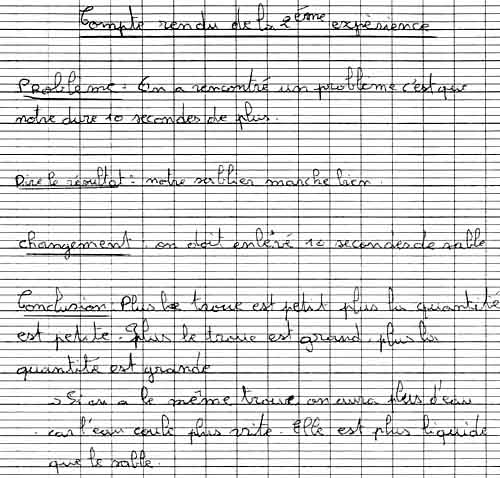 Compte rendu de la 2ème expèrience
PRoblème : On a rencontré un problème c'est que
notre dure 10 secondes de plus.
Dire le résultat : notre sablier marche bien.
changement : on doit enlévé 10 secondes de sable
Conclusion : Plus le troue est petit plus la quantité
est petite. Plus le troue est grand, plus la
quantité est grande
→ Si on a le même troue, on aura plus d'eau
car l'eau coule plus vite. Elle est plus liquide
que le sable.